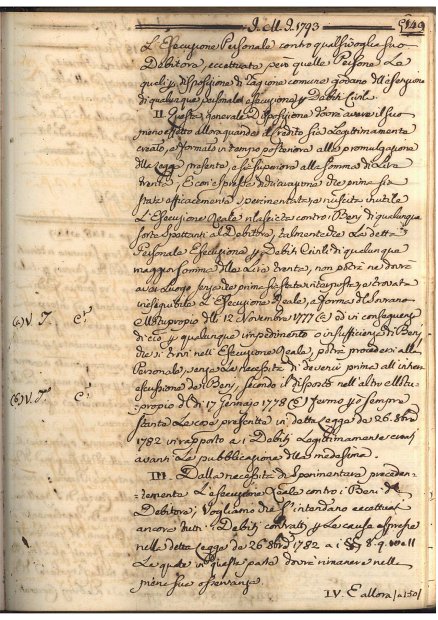 J. M. J. 1793
149
L'Esecuzione Personale contro qualsivoglia suo
Debitore eccettuate però quelle Persone Le
quali p disposizione di ragione comune godano dell'esenzione
di qualunque personale esecuzione p Debiti Civili.
II. Questa generale Disposizione dovrà avere il suo
pieno effetto allora quando il credito sia Legittimamente
creato, e formato in tempo posteriore alla promulgazione
della Legge presente, e sia superiore alla somma di Lire
trenta, E con espressa dichiarazione che prima sia
stata efficacemente sperimentata, e riuscita inutile
L'Esecuzione Reale rilasciata contro i Beni di qualunque
sorte spettanti al Debitore, talmente che La detta
Personale Esecuzione p Debiti Civili di qualunque
maggior somma delle Lire trenta, non potrà ne dovrà
aver Luogo, senza che prima sia stata intrapresa, e trovata
ineseguibile L'Esecuzione Reale, a forma del Sovrano
Motuproprio de 12 Novembre 1777 (a) ed in conseguenza
di ciò p qualunque impedimento o insufficienza di Beni
che si trovi nell'Esecuzione Reale, potrà procedersi alla
Personale, senza La necessità di devenir prima all'intera
escussione dei Beni, secondo il disposto nell'altro Motu-
proprio de 17 Gennajo 1778 (b) fermo p sempre
stante Le cose prescritte in detta Legge de 26. 8bre
1782 in rapporto a i Debiti Legittimamente creati
avanti La pubblicazione della medesima.
III. Dalla necessità di sperimentare preceden-
temente L'esecuzione Reale contro i Beni del
Debitore, Vogliamo che s'intendano eccettuati
ancora tutti i Debiti contratti p Le cause espresse
nella detta Legge de 26 8bre 1782 a i §§ 8. 9. 10 e 11
Le quali in questa parte dovrà rimanere nella
piena sua osservanza.
IV. E allora
(a) V. T. c.
(b) V. T. c.